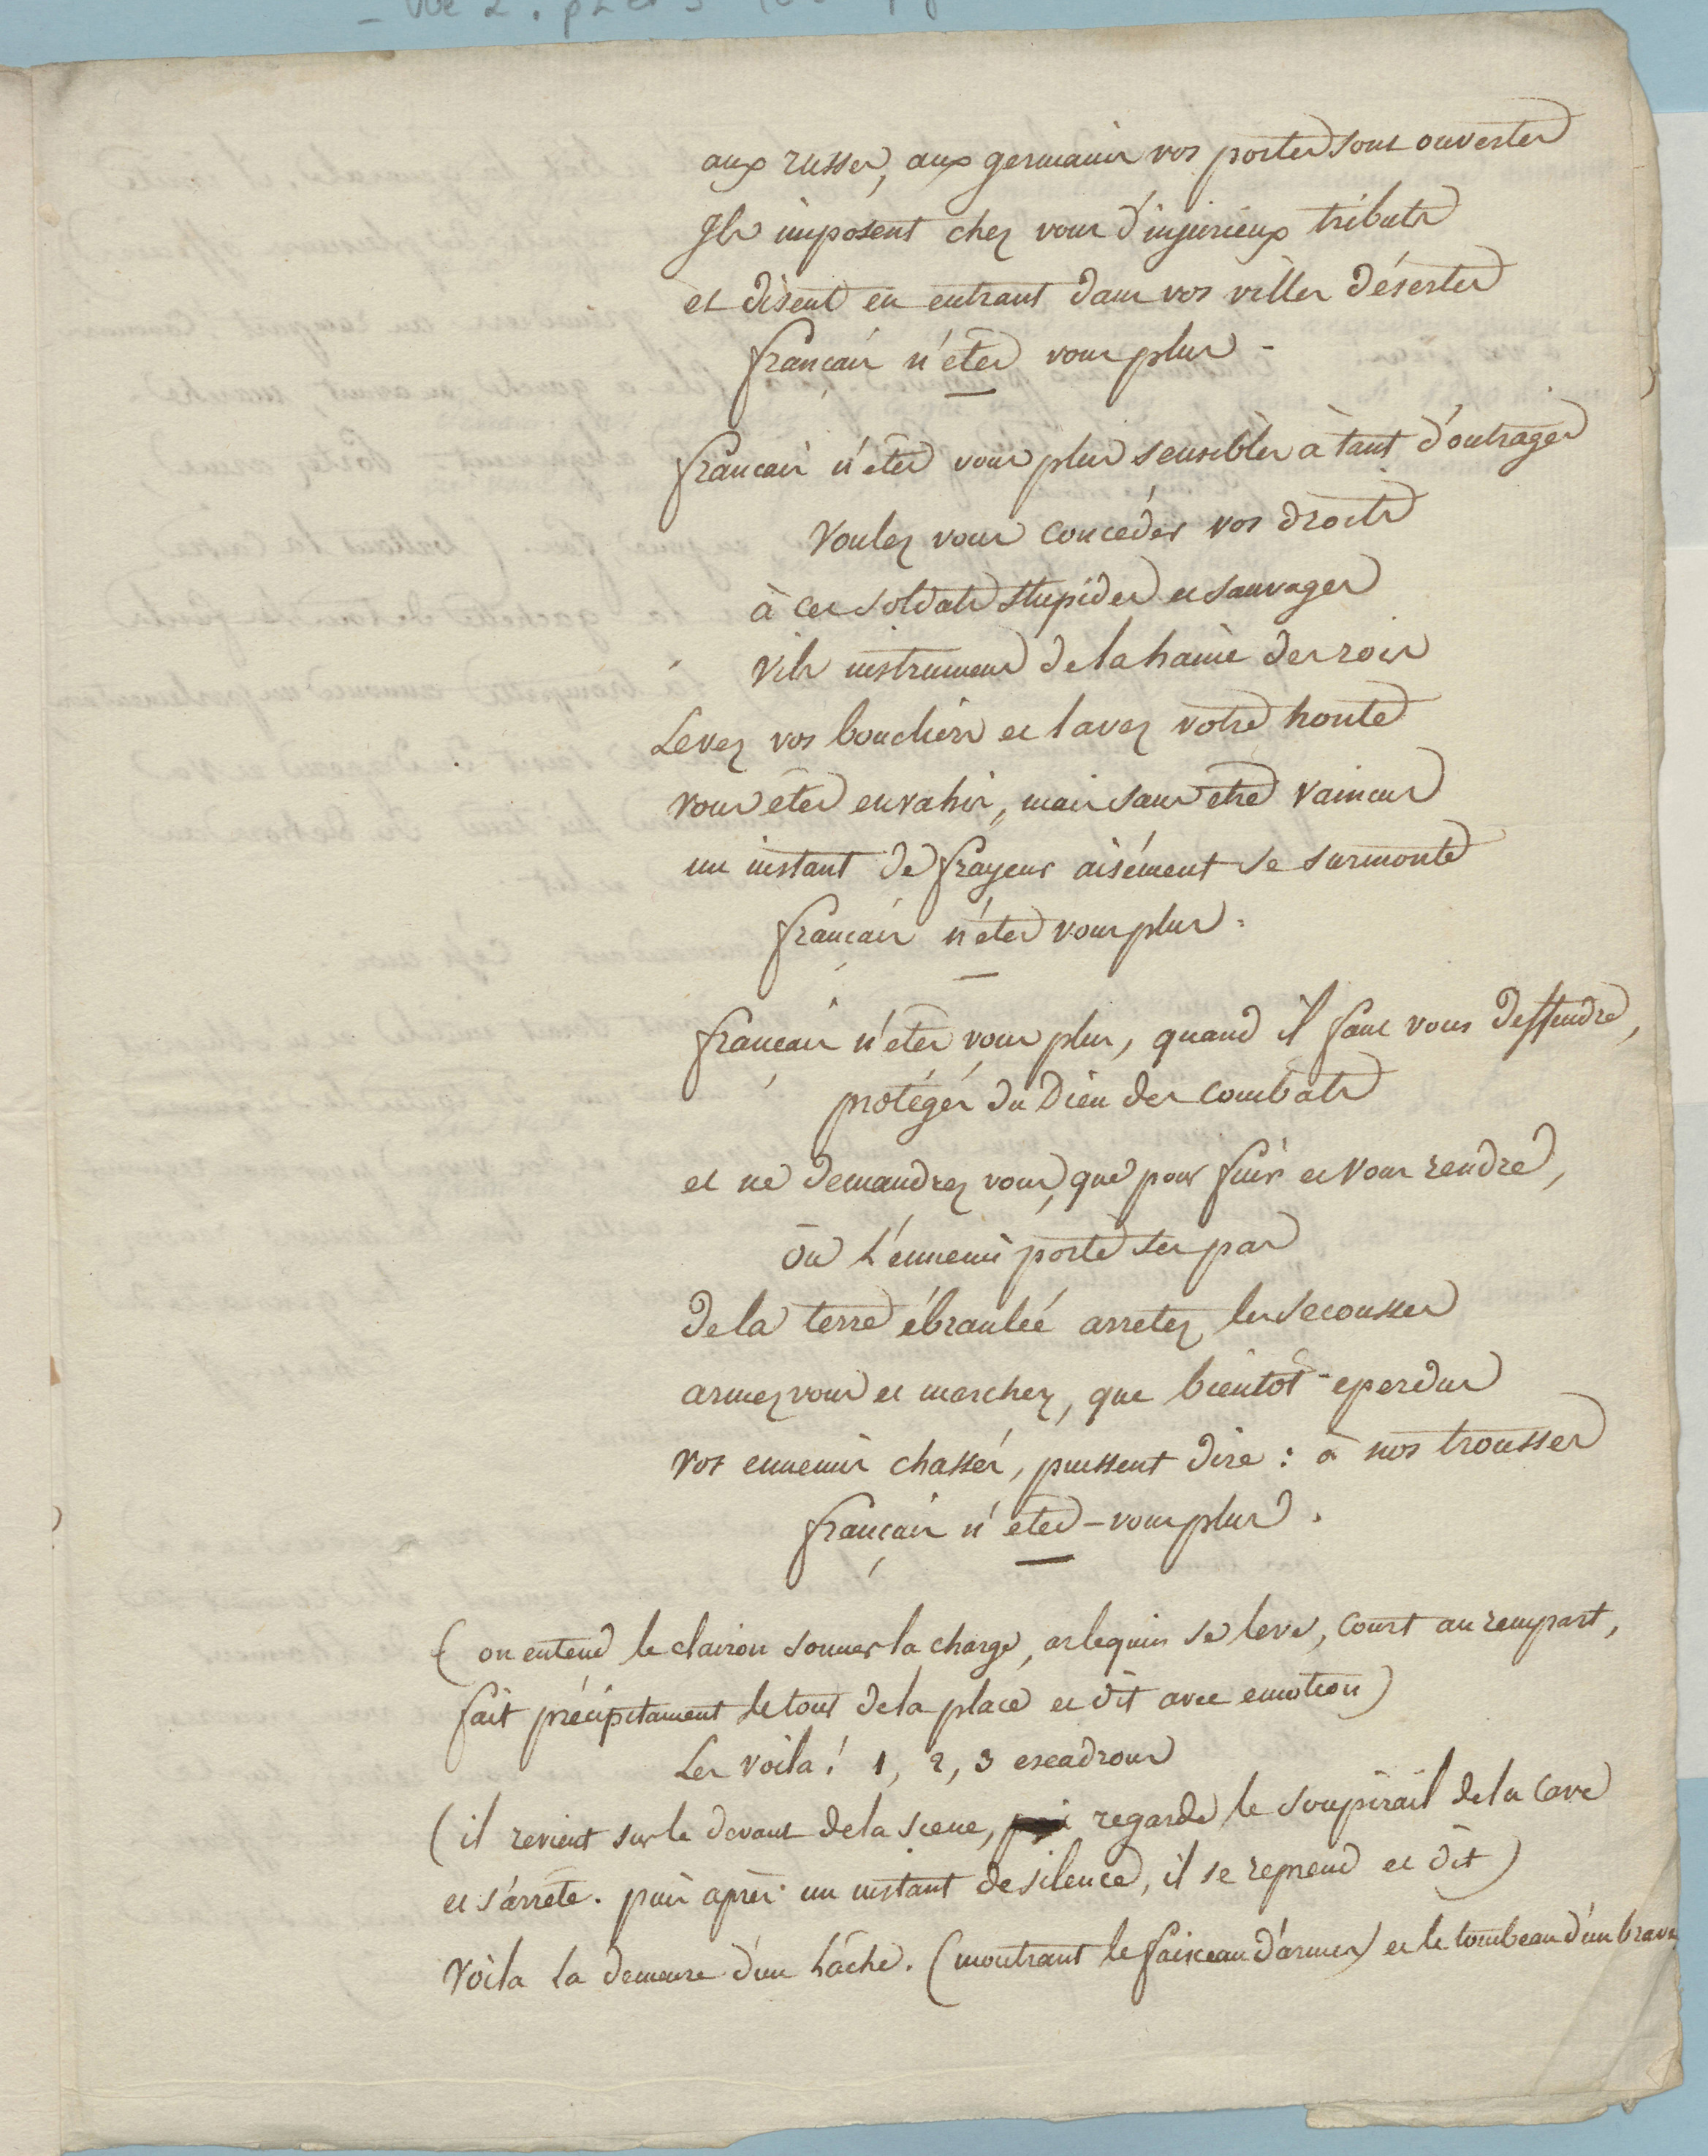 aux russes, aux germains vos portes sont ouvertes
Ils imposent chez vous d'injurieux tributs
et disent en entrant dans vos villes désertes
français n'etes vous plus -
francais n'etes vous plus sensibles à tant d'outrages
Voulez vous concéder vos droits
à ces soldats stupides et sauvages
Vils instrumens de la haine des rois
Levez vos boucliers et lavez votre honte
vous êtes envahis, mais sans etre vaincus
un instant de frayeur aisément se surmonte
français n'étes vous plus.
français n'etes vous plus, quand il faut vous deffendre,
protégés du Dieu des combats
et ne demandrez vous, que pour fuir et vous rendre,
où L'ennemi porte ses pas
de la terre ébranléé arretez les secousses
armez vous et marchez, que bientôt eperdus
vos ennemis chassés, puissent dire : à nos trousses
français n'etes-vous plus.
( on entend le clairon sonner la charge, arlequin se leve, court au rempart,
fait précipitament le tour de la place et dit avec emotion)
Les voila ! 1, 2, 3 escadrons
( il revient sur le devant de la scene, regarde le soupirail de la cave
et s'arrête. puis après un instant de silence, il se reprend et dit )
Voila la demeure d'un lâche. (montrant le faisceau d'armes) et le tombeau d'un brave